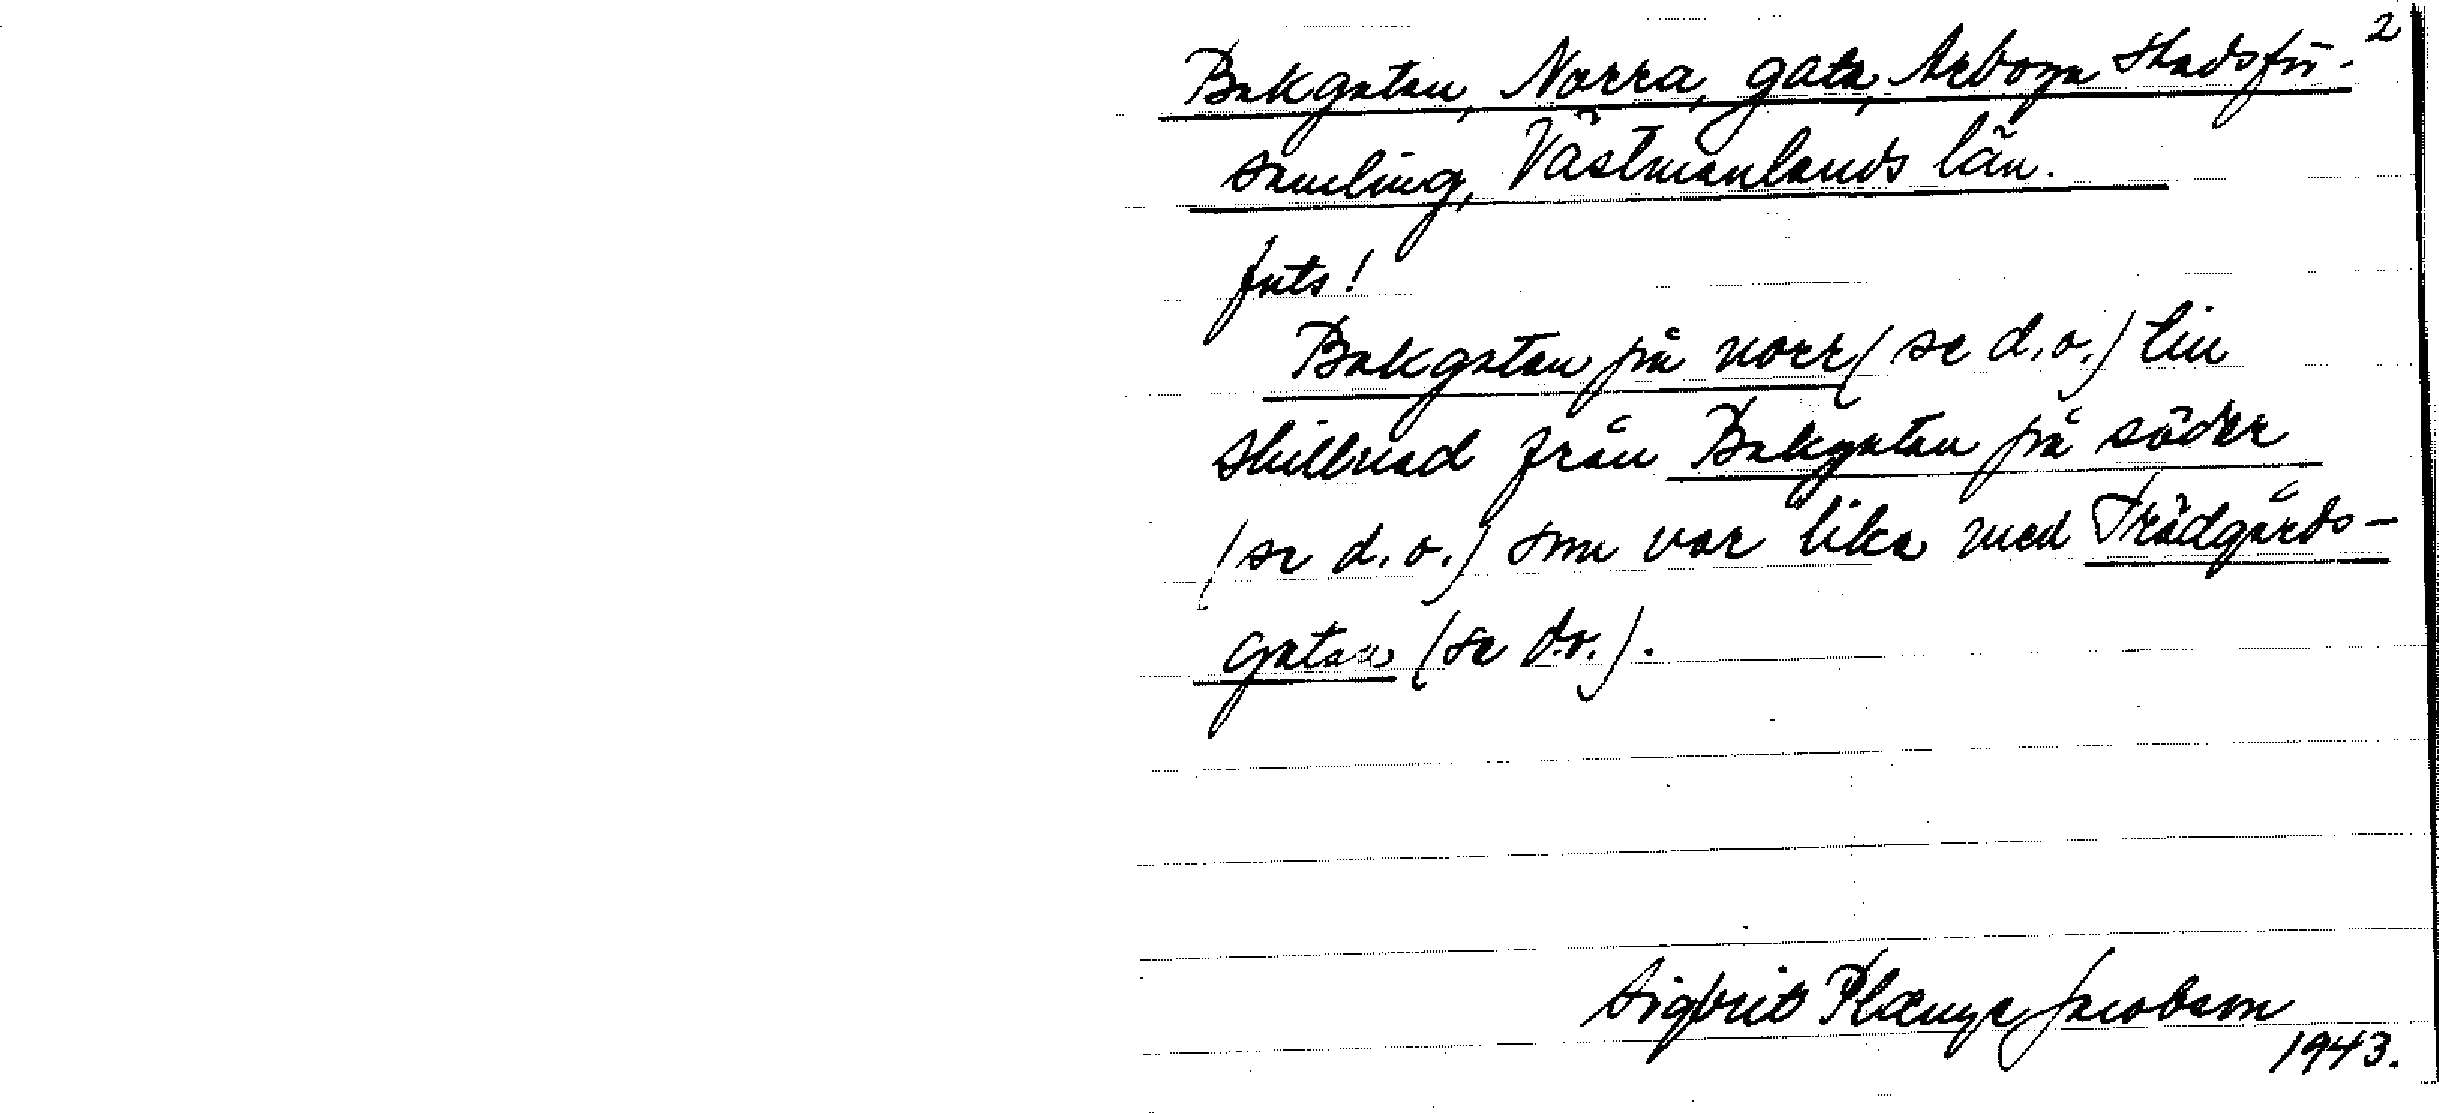 2
Bakgatan, Norra, gata, Arboga stadsför-
samling, Västmanlands län.
forts!
Bakgatan på norr (se d.o.) till
skillnad från Bakgatan på söder
(se d.o.) som var lika med Trädgårds-
gatan (se d.o.).
Sigbrit Plænge Jacobson
1943.